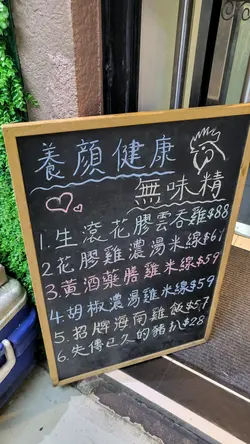 養顏健康
無味精
1.生滾花膠雲吞雞$88
2.花膠雞濃湯米線$61
3.黃酒藥膳雞米線$59
4.胡椒濃湯雞米線$59
5.招牌海南雞飯$57
6.失傳已久的豬扒$28